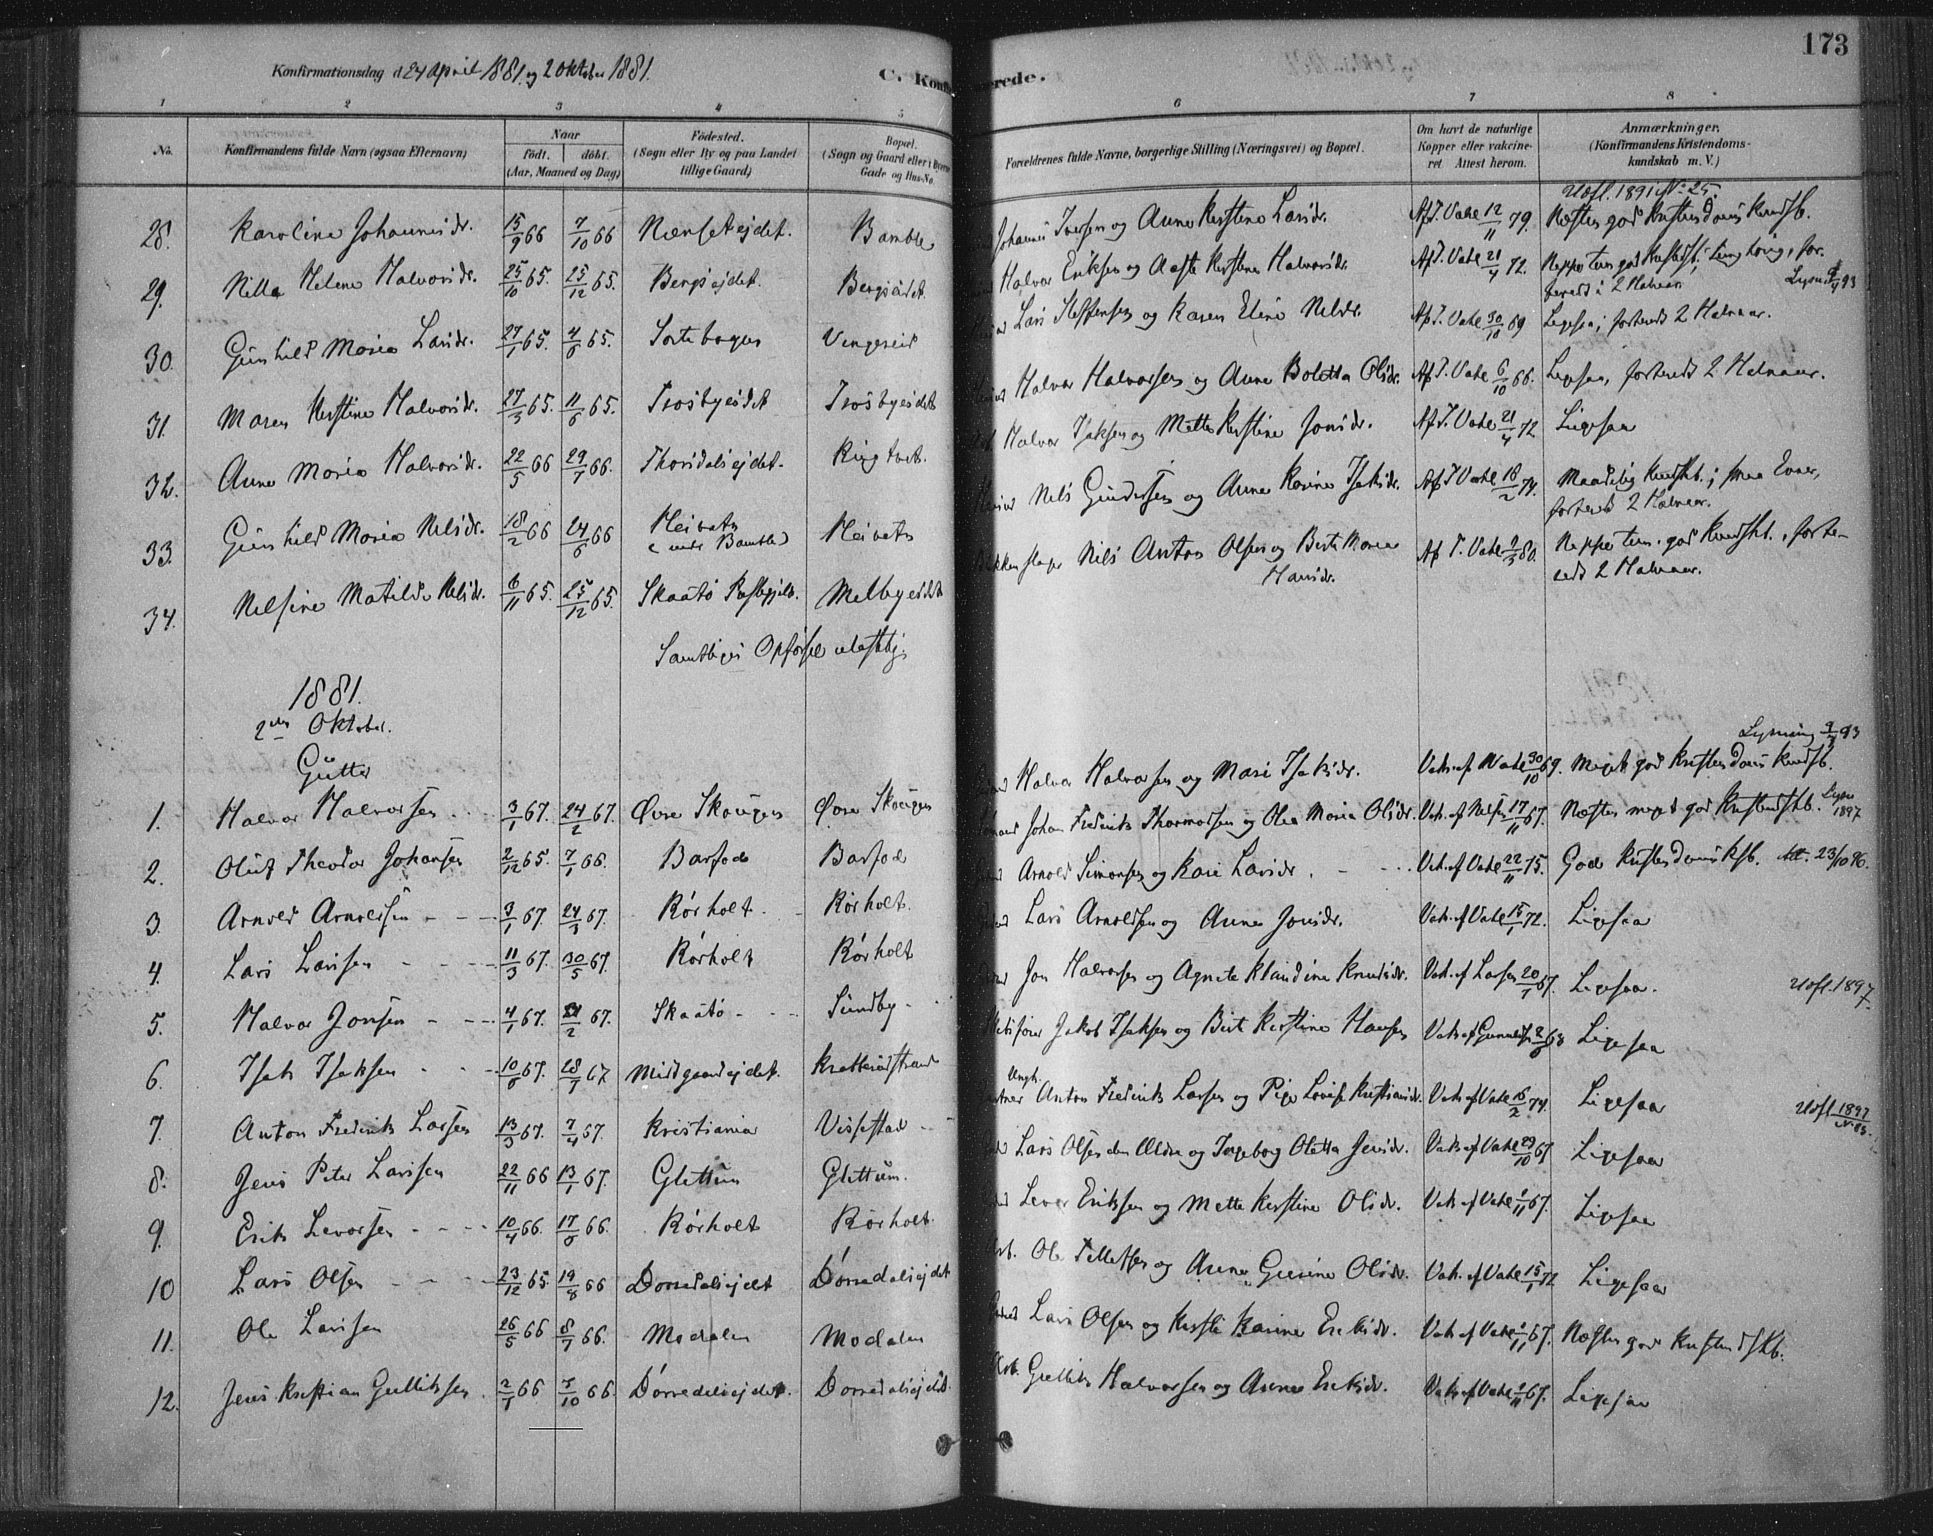 173
Konfirmationsdag d. 24 April 1881. og 2 Oktober 1881.
C. Konfi
erede.
1 2 3 4 5 6 7 8
No.
Konfirmandens fulde Navn (ogsaa Efternavn)
Naar
født. døbt.
(Aar, Maaned og Dag)
Fødested.
(Sogn eller By og paa Landet
tillige Gaard)
Bopæl.
(Sogn og Gaard eller i Byerne
Gade og Hus-No.
Forældrenes fulde Navne, borgerlige Stilling (Næringsvei) og Bopæl.
Om havt de naturlige
Kopper eller vakcine-
ret Attest herom.
Anmærkninger.
(Konfirmandens Kristendoms-
kundskab m. V.)
Udfl. 1891 No 25.
28. Karoline Johannesdr. 15/9 66 7/10 66 Nensetejdet. Bamble Johannes Iversen og Anne Kirstine Larsdr. Af J. Vahl 12/11 79. Næsten god Kristendoms Kundsb.
29. Nilla Helene Halvorsdr. 25/10 65. 25/12 65. Bergsejdet. Bergseidet. Halvor Eriksen og Aaste Kirstine Halvorsdr. Af J. Vahl 21/4 72.
beredt i 2 Halvaar. Lysn. 93
30. Gunhild Maria Larsdr. 27/1 65. 4/6 65. Sortebogen Vengeseid Lars Steffensen og Karen Eline Nilsdr. Af J. Vahl 30/10 69 Ligesaa; forberedt 2 Halvaar.
31. Maren Kirstine Halvorsdr. 27/3 65. 11/6 65. Trosbyeidet Trosbyeidet Halvor Halvorsen og Anne Boletta Olsdr. Af J. Vahl 6/10 66. Ligesaa, forberedt 2 Halvaar.
32. Anne Maria Halvorsdr. 22/5 66 29/7 66. Thorsdalsejdet. Ringtvet. Halvor Isaksen og Mette Kirstine Jonsdr. Af J. Vahl 21/4 72 Ligesaa
33. Gunhild Maria Nilsdr. 18/2 66 24/6 66 Heivatn Heivatn Nils Gundersen og Anne Karine Isaksdr. Af J Vahl 18/2 74. Maadelig Kundskb.; smaa Evner,
(under Bamble) forberedt 2 Halvaar.
34. Nilsine Matilde Nilsdr. 6/11 65. 25/12 65. Skaatø Præstegjeld. Melbyeidet Nils Anton Olsen og Berte Marie Af J. Vahl 80. Neppe tem. god Kundskb., forbe-
Hansdr. redt 2 Halvaar.
Samtliges Opførsel ulastelig.
1881.
2den Oktober.
Gutter
Lysning 93
1. Halvor Halvorsen 3/1 67. 24/2 67. Øvre Skougen Øvre Skougen Halvor Halvorsen og Mari Isaksdr. Vak. af Vahl 30/10 69. Meget god Kristendoms Kundsb.
2. Oluf Theodor Johansen 2/12 65. 7/1 66. Barfod Barfod Johan Frederik Thormodsen og Olea Maria Olsdr. Vak. af Nilsen 17/11 67. Næsten meget god Kristendskb. Lysn 1897
3. Arnold Arnoldsen 3/1 67. 24/3 67. Rörholt Rörholt. Arnold Simonsen og Kari Larsdr. Vak. af Vahl 22/11 75. God Kristendoms Ksb. Att. 23/10 96.
4. Lars Larssen 11/3 67. 30/5 67. Rörholt Rörholt Lars Arnoldsen og Anne Jonsdr. Vak. af Vahl 15/1 72. Ligesaa
5. Halvor Jonsen 4/1 67. 24/2 67. Skaatø Sundby Jon Halvorsen og Agnete Klaudine Knudsdr. Vak. af Larsen 20/7 67. Ligesaa. Udfl. 1897.
6. Isak Isaksen 10/6 67. 28/7 67 Midgaardsejdet. Krabberødstrand Jakob Isaksen og Berte Kirstine Hansen Vak. af Ligesaa
7. Anton Frederik Larsen 13/3 67. 7/4 67. Kristiania Vissestad Ungk. Anton Frederik Larsen og Pige Lovise Kristiansdr. Vak. af Vahl 16/2 74. Ligesaa Udfl 1897
8. Jens Peter Larssen 22/11 66 13/1 67. Glittum Glittum. Lars Olsen den Ældre og Ingeborg Oletta Jensdr. Vak. af Vahl 29/10 67 Ligesaa
9. Erik Levorsen 10/4 66. 17/6 66. Rörholt Rörholt. Levor Eriksen og Mette Kirstine Olsdr. Vak. af Vahl 1/11 67. Ligesaa
10 Lars Olsen 23/12 65. 19/8 66 Dörsdalsejdet Dörsdalsejdet Ole Tellefsen og Anne Gurine Olsdr. Vak. af Vahl 15/1 72 Ligesaa
11. Ole Larssen 26/5 66 8/7 66. Modalen Modalen Lars Olsen og Kirsti Karine Eriksdr. Vak. af Vahl 1/11 67. Næsten god Kristendskb.
12. Jens Kristian Gulliksen 2/1 66 7/10 66 Dörsdalsejdet. Dorsdalsejdet. Gullik Halvorsen og Anne Eriksdr. Vak. af Vahl 1/11 67. Ligesaa